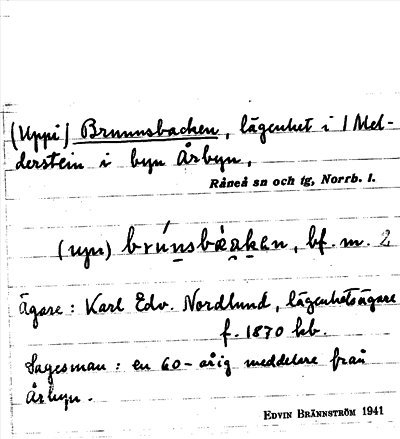 (Uppi) Brunnsbacken, lägenhet i 1 Mel-
derstein i byn Årbyn,
Råneå sn och tg, Norrb. l.
(upi) brúnsbàkən, bf. m. 2
Ägare: Karl Edv. Nordlund, lägenhetsägare
f. 1870 hb.
Sagesman: en 60-årig meddelare från
Årbyn.
EDVIN BRÄNNSTRÖM 1941